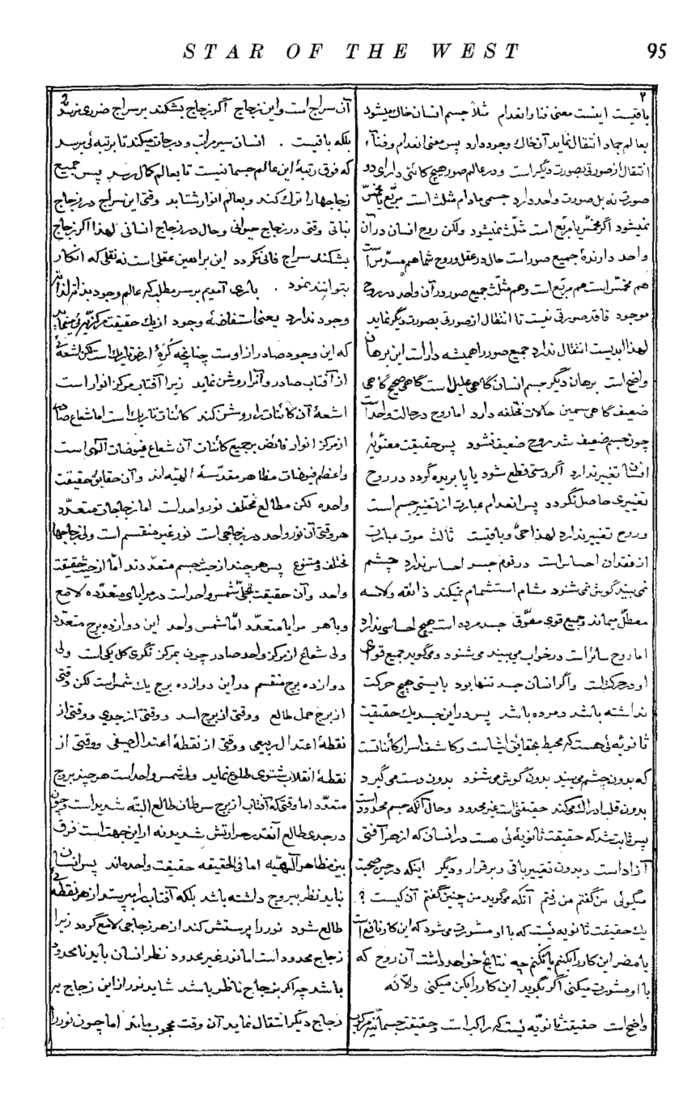 STAR OF THE WEST 95
۳
باقیست اینست معنی فنا و انعدام مثلاً جسم انسان خاک میشود
بعالم جماد انتقال نماید آن خاک وجود دارد پس معنی انعدام و فناء
انتقال از صورتی بصورت دیگر است و در عالم صور هیچ کائنی دارای دو
صورت نه بل صورت واحد دارد جسمی مادام مثلث است مربّع یا مخمّس
نمیشود اگر مخمّس یا مربّع است مثلّث نمیشود ولکن روح انسان در آن
واحد دارندهٔ جمیع صور است حال در عقل و روح شما هم مسدّس است
هم مخمّس است هم مربّع است و هم مثلّث جمیع صور در آن واحد در روح
موجود فاقد صورتی نیست تا انتقال از صورتی بصورت دیگر نماید
لهذا ابدیست انتقال ندارد جمیع صور را همیشه داراست این برهان
واضح است برهان دیگر جسم انسان گاهی علیل است گاهی صحیح گاهی
ضعیف گاهی سمین حالات مختلفه دارد اما روح در حالت واحد است
چون جسم ضعیف شد روح ضعیف نشود پس حقیقت معنویّهٔ
انسان تغییر ندارد اگر دستی قطع شود یا پا بریده گردد در روح
تغییری حاصل نگردد پس انعدام عبارت از تغییر جسم است
و روح تغییر ندارد لهذا حیّ و باقیست ثالث موت عبارت
از فقدان احساس است در نوم جسد احساس ندارد چشم
نمی‌بیند گوش نمی‌شنود مشام استشمام نمیکند ذائقه ولامسه
معطّل میماند و جمیع قوی معوّق جسد مرده است هیچ احساسی ندارد
اما روح سائر است در خواب می‌بیند می‌شنود و میگوید جمیع قوای
او در حرکتست و اگر انسان جسد تنها بود بایستی هیچ حرکت
نداشته باشد و مرده باشد پس در این جسد یک حقیقت
ثانویّه‌ئی هست که محیط بحقایق اشیاست و کاشف اسرار کائناتست
که بدون چشم می‌بیند بدون گوش می‌شنود بدون دست می‌گیرد
بدون قلب ادراک میکند حقیقتی است غیر محدود و حال آنکه جسم محدود است
پس ثابت شد که حقیقت ثانویه‌ئی هست در انسان که از هر آفتی
آزاد است و بدون تغییر باقی و برقرار و دیگر اینکه در حین صحبت
میگوئی من گفتم من رفتم آنکه میگوید من چنین گفتم آن کیست ؟
یک حقیقت ثانویه ایست که با او مشورت می‌شود که این کار نافع است
یا مضر این کار را بکنم یا نکنم چه نتایج خواهد داشت آن روح که
با او مشورت میکنی اگر بگوید این کار را بکن میکنی و الّا نه
واضح است حقیقت ثانویّه ایست که راکب است و حقیقت جسمانیّه مرکوب
۲
آن سراج است و این زجاج اگر زجاج بشکند بر سراج ضرری نرسد
بلکه باقیست . انسان سیر مراتب و درجات میکند تا برتبه‌ئی برسد
که فوق رتبهٔ این عالم جسمانیست تا بعالم کمال رسد پس جمیع
زجاجها را ترک کند و بعالم انوار شتابد وقتی این سراج در زجاج
نباتی وقتی در زجاج حیوانی و حال در زجاج انسانی لهذا اگر زجاج
بشکند سراج فانی نگردد این براهین عقلی است نه نقلی که انکار
بتوانند نمود . باری آمدیم بر سر مطلب که عالم وجود بذاته لذاته
وجود ندارد یعنی استفاضهٔ وجود از یک حقیقت مرکزیّه می‌نماید
که این وجود صادر از اوست چنانچه کرهٔ ارض تاریک است لکن اشعه‌ئی
از آفتاب صادر و آنرا روشن نماید زیرا آفتاب مرکز انوار است
اشعهٔ آن کائنات را روشن کند کائنات تاریک است اما شعاع صادر
از مرکز انوار فائض بر جمیع کائنات آن شعاع فیوضات الهی است
و اعظم فیوضات مظاهر مقدسهٔ الهیّه اند و آن حقایق حقیقت
واحده لکن مطالع مختلف نور واحد است اما زجاجات متعدّد
هر وقتی آن نور واحد در زجاجی است نور غیر منقسم است ولی زجاجها
مختلف و متنوع پس هر چند از حیث جسم متعدّدند امّا از حیث حقیقت
واحد و آن حقیقت تجلّی شمس واحد است در مرایای متعدّده لامع
و باهر مرایا متعدّد امّا شمس واحد این دوازده برج متعدّد
ولی شعاع از مرکز واحد صادر چون بمرکز نگری کل یکی است ولی
دوازده برج منقسم در این دوازده برج یک شمس است لکن وقتی
از برج حمل طالع و وقتی از برج اسد و وقتی از جدی و وقتی از
نقطهٔ اعتدال ربیعی و وقتی از نقطهٔ اعتدال صیفی و وقتی از
نقطهٔ انقلاب شتوی طلوع نماید ولی شمس واحد است هر چند بروج
متعدّد اما وقتی که آفتاب از برج سرطان طالع البتّه شدید است و چون
در جدی طالع آنقدر حرارتش شدید نه از این جهت است فرق
بین مظاهر الهیّه اما فی الحقیقه حقیقت واحده‌اند پس انسان
نباید نظر ببروج داشته باشد بلکه آفتاب را بپرستد از هر نقطه‌ئی
طالع شود نور را پرستش کند از هر زجاجی لامع گردد زیرا
زجاج محدود است اما نور غیر محدود نظر انسان باید نامحدود
باشد چه اگر بزجاج ناظر باشد شاید نور از این زجاج بر
زجاج دیگر انتقال نماید آن وقت محجوب ماند اما چون نور را